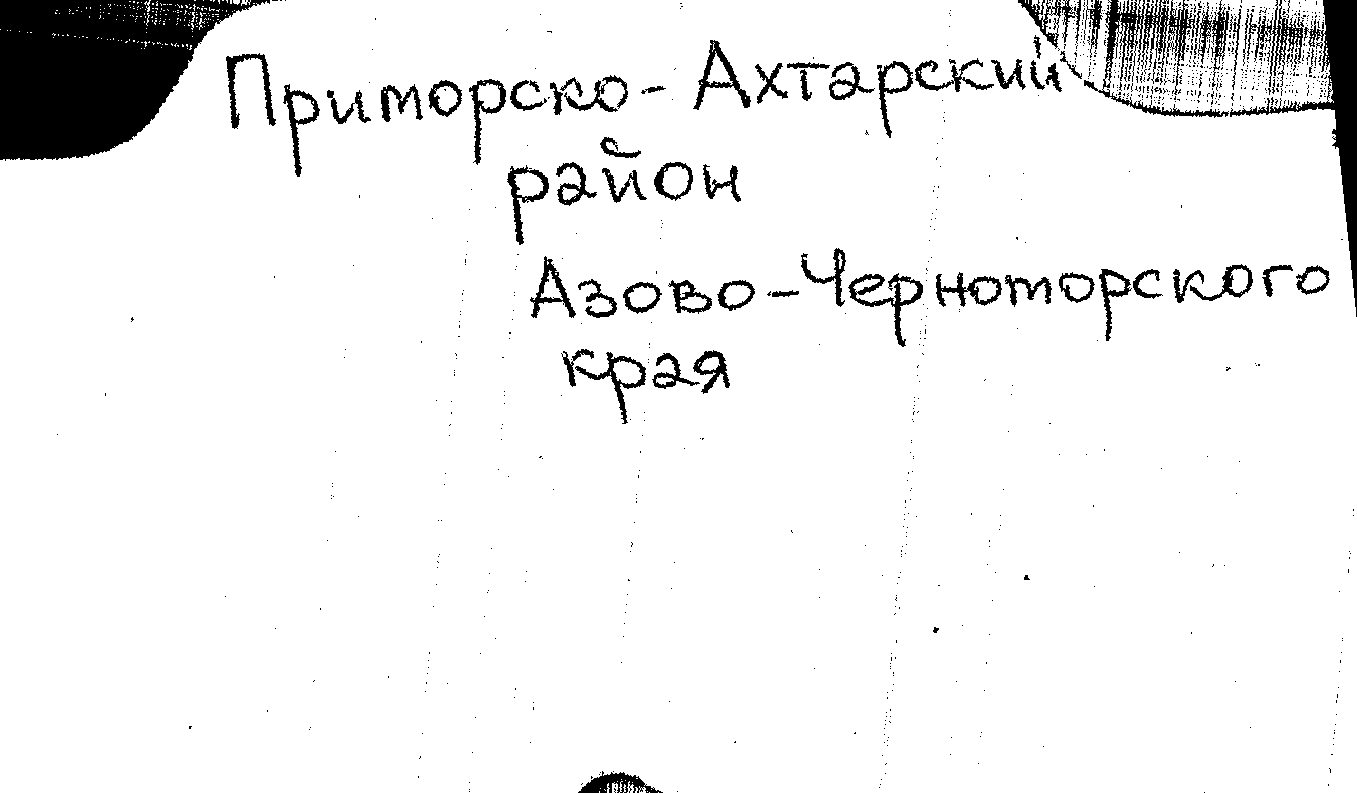 Приморско-Ахтарский
район
Азово-Черноморского
края